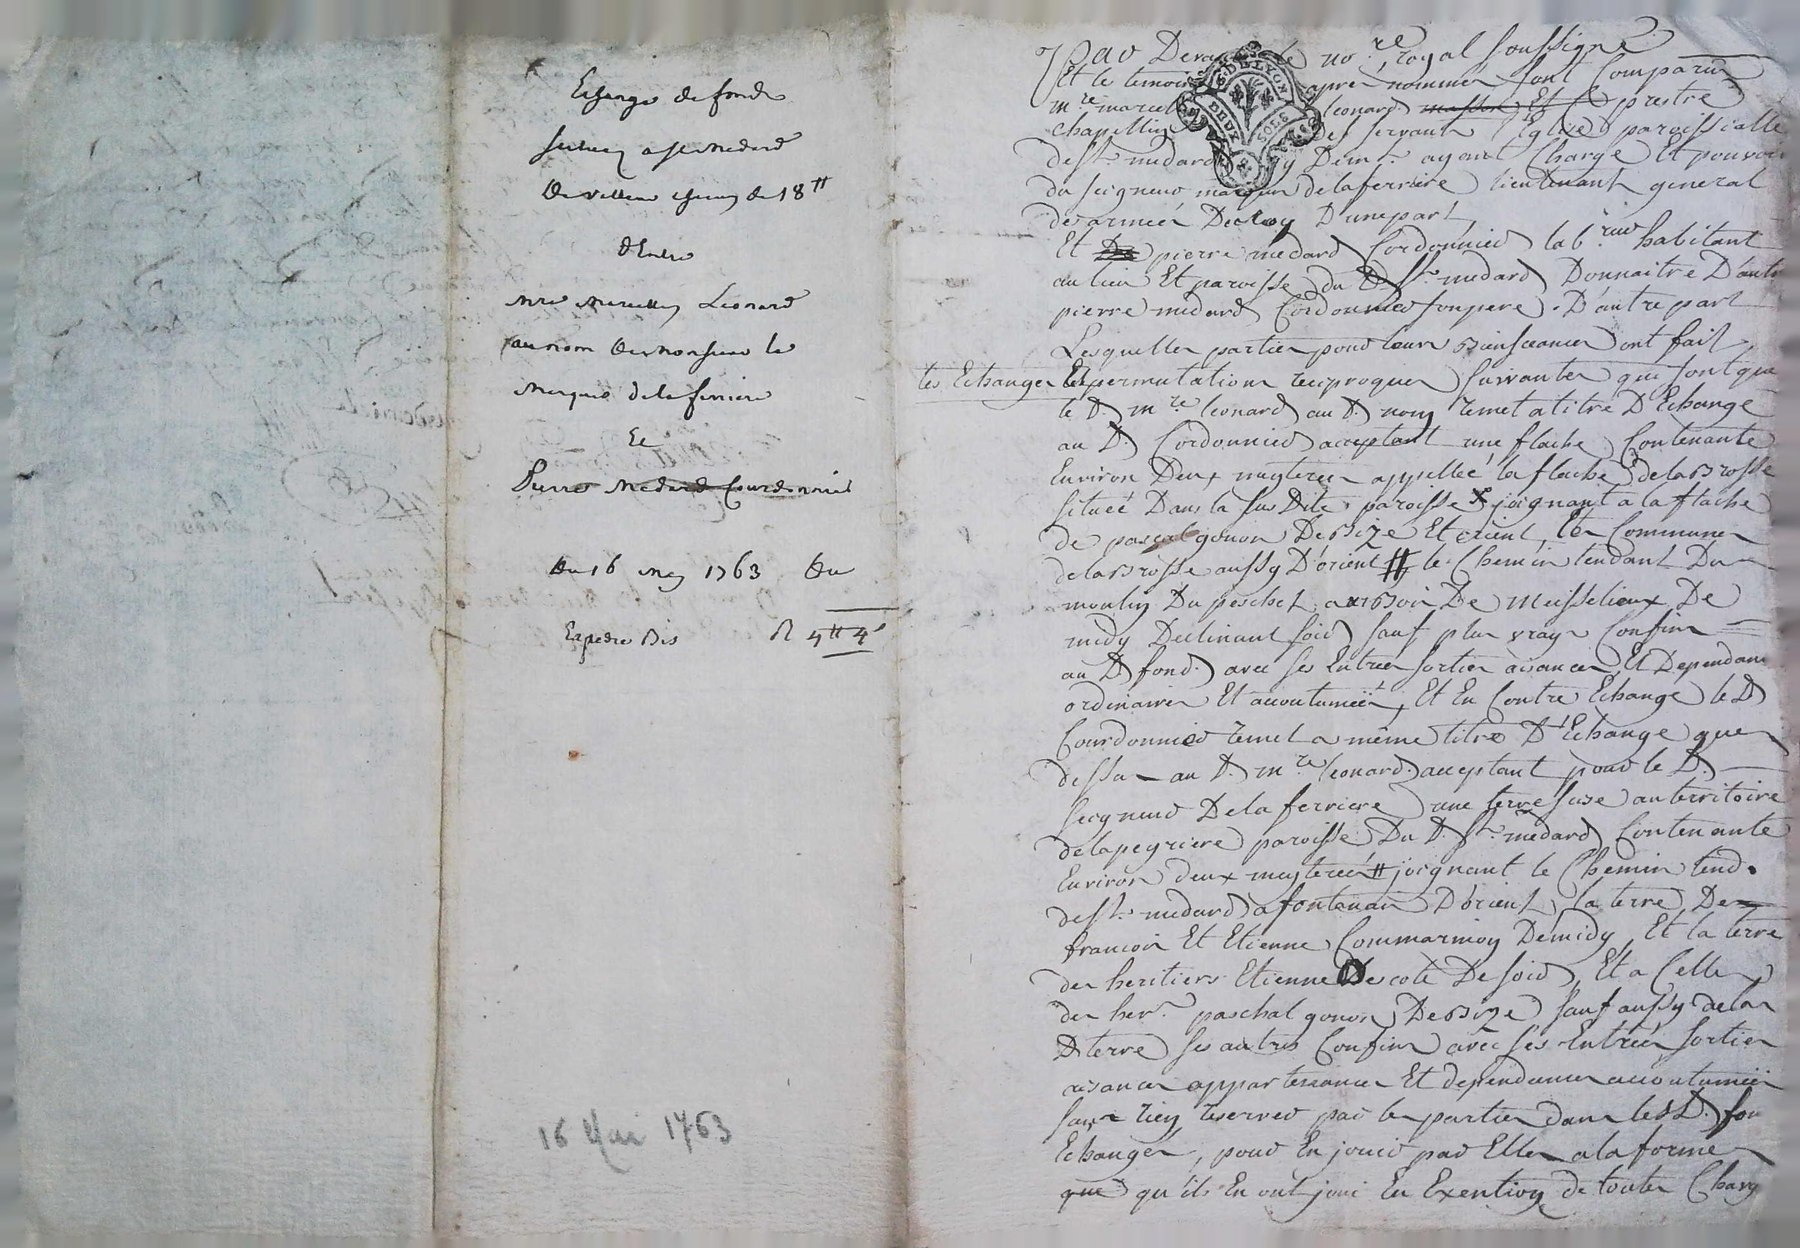 Echange de fonds
a St Medard
de 18ᵗᵗ
d'Entre
Mre Marcellin Leonard
au nom de Monsieur le
Marquis de la ferriere
Et
Pierre Medard Courdonnier
Du 16 May 1763 Du
Expedié Bis R 4ᵗᵗ 4ˢ
16 Mai 1763
Par Devant le no.re royal soussigné
Et le temoins apres nommés sont Comparus
m.re marcellin leonard prestre
Chapellin des servant l'Eglise paroissialle
de st. medard y Dem.t ayant Charge Et pouvoir
du seigneur marquis de la ferriere lieutenant general
des armées Du Roy D'une part
Et pierre medard Cordonnier lab.reur habitant
au lieu Et paroisse du D. st. medard Donnaitre D'autre
pierre medard Cordonnier son pere. D'autre part
Lesquelles parties pour leurs Bienseances ont fait
les Echanges Et permutations reciproques suivantes qui sont que
le D. m.re leonard au D. nom remet a titre D'Echange
au D. Cordonnier acceptant une flache Contenante
Environ Deux mayterées appellée la flache de la Brosse
situéé Dans la sus Dite paroisse joignant a la flache
de pascal gonon De Bize Et orient, les Communes
de la Brosse aussy D'orient # le Chemin tendant Du
moulin Du peschet au Bois De meisselieux De
midy Declinant soir sauf plus vrays Confins
au D. fond. avec ses Entrées sorties aisances Et Dependan
ordinaires Et accoutuméés, Et En Contre Echange le D
Courdonnier remet a même titre D'Echange que
dessus au D. m.re leonard. acceptant pour le D.
seigneur De la ferriere une terre sise au territoire
de la peyriere paroisse Du D. st. medard Contenante
Environ deux mayteréés # joignant le Chemin tend.
de st. medard a fontanes D'orient, la terre De
francois Et Etienne Commarmoy De midy, Et la terre
des heritiers Etienne Descote De soir, Et a Celle
des her.s paschal gonon De Bize sauf aussy de la
D terre ses autres Confins avec ses Entréés sorties
aisances appartenances Et dependances accoutuméés
sans rien reserver par les parties dans lesd. fon
Echangés, pour En jouir par Elles a la forme
que qu'ils En ont joui En Exention de toutes Charg